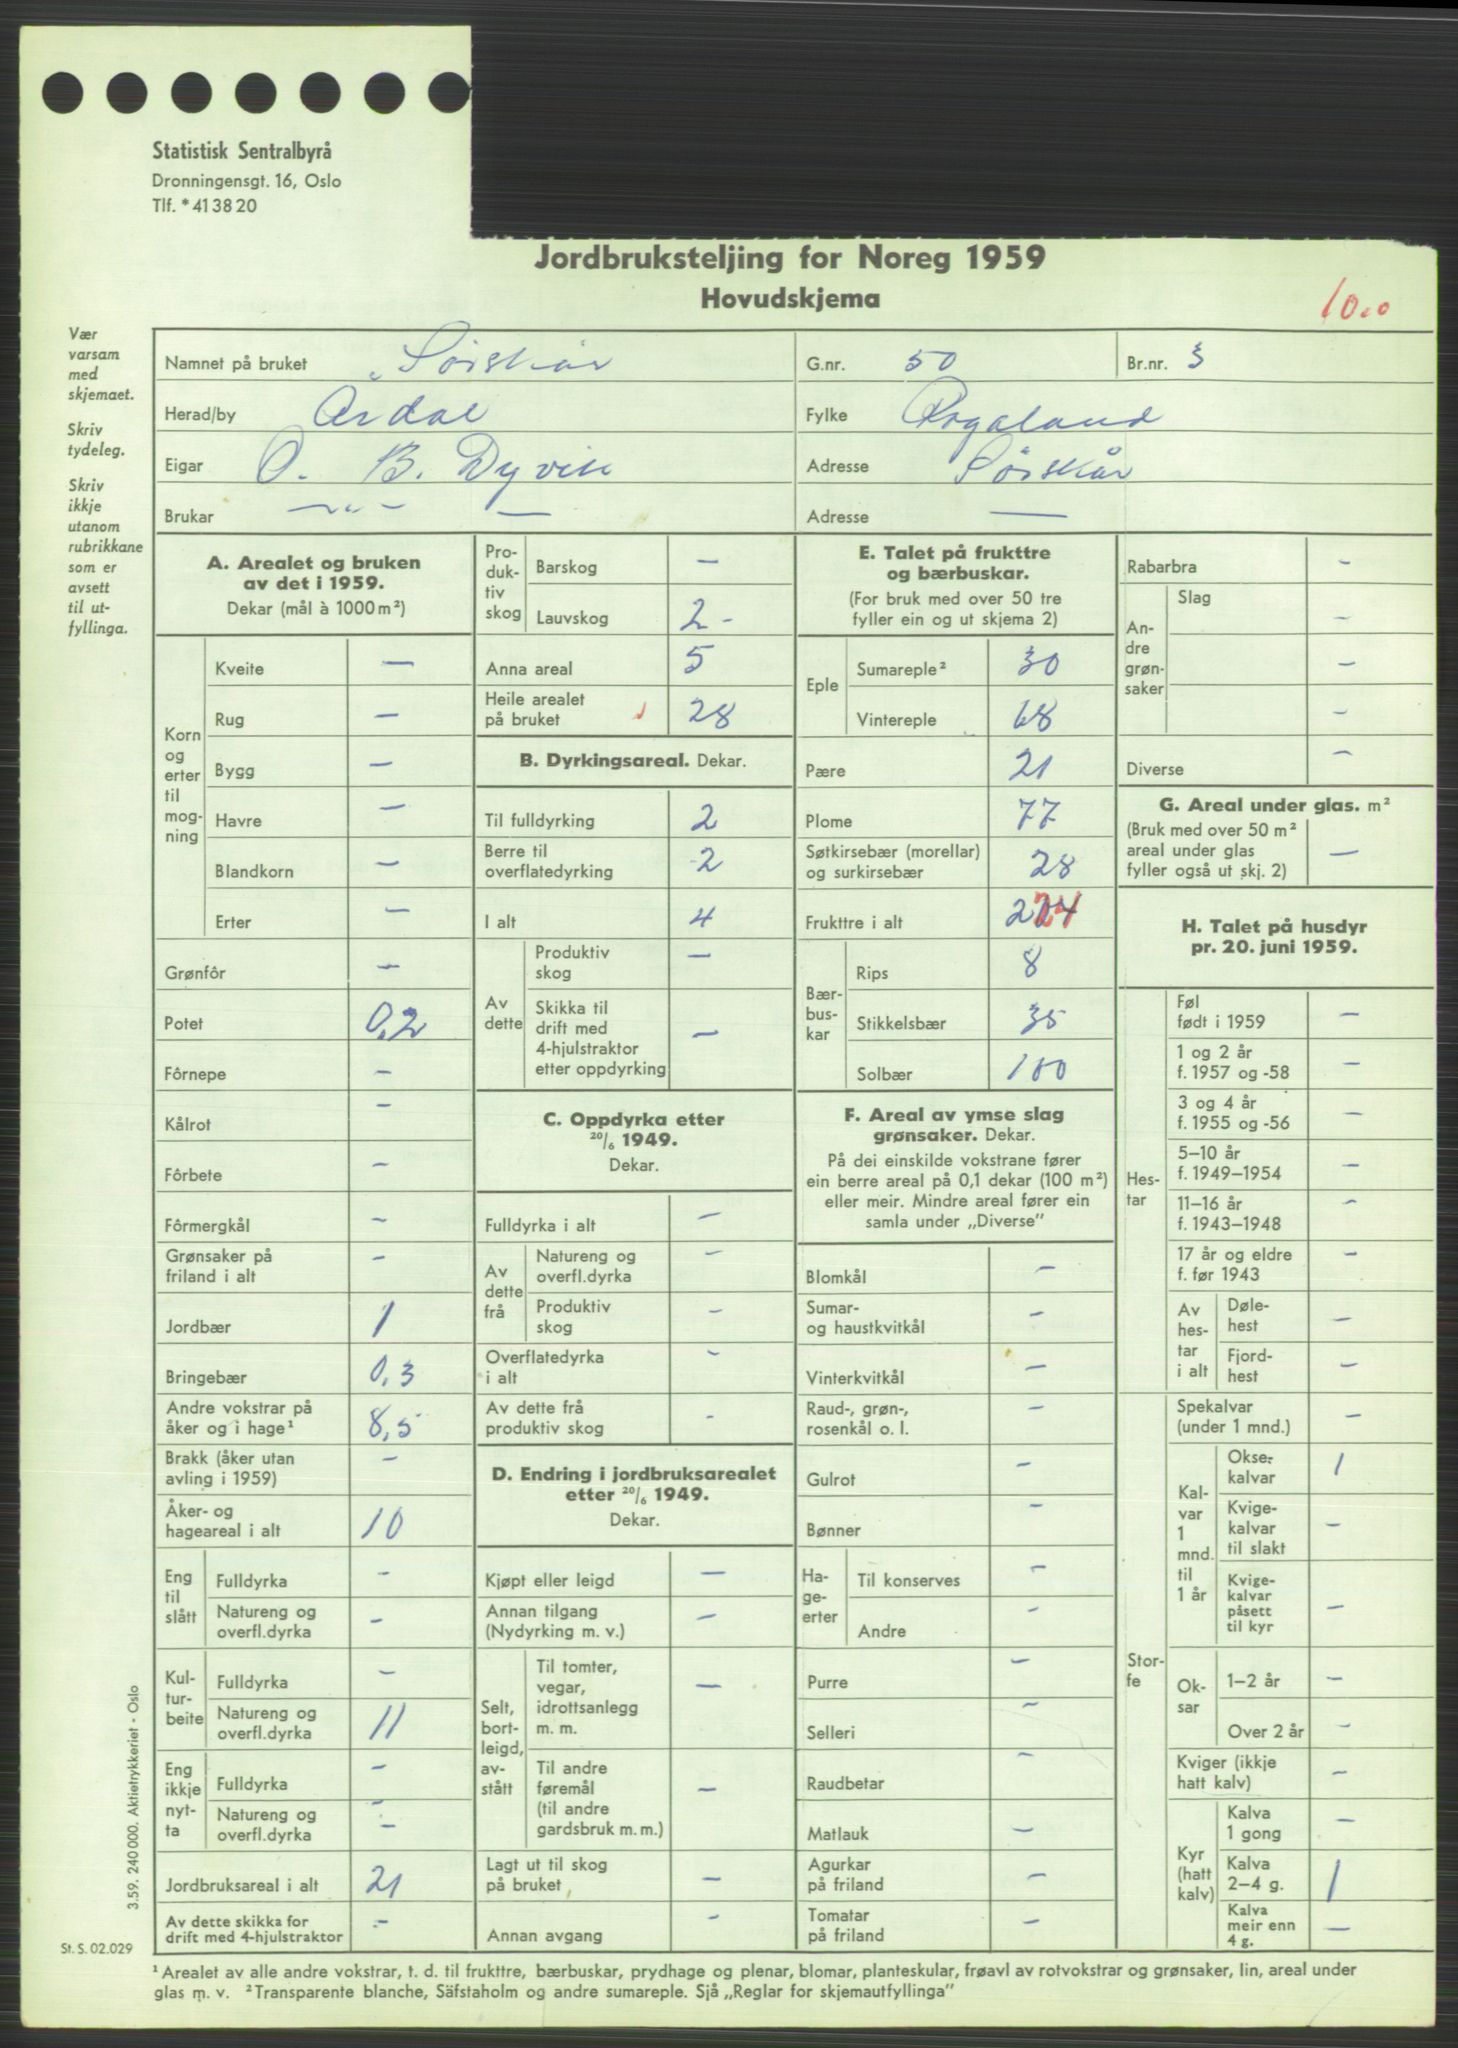 Statistisk Sentralbyrå
Dronningensgt. 16, Oslo
Tlf. * 41 38 20
Jordbruksteljing for Noreg 1959
Hovudskjema
10.0
Vær
varsam
med
skjemaet.
Skriv
tydeleg.
Skriv
ikkje
utanom
rubrikkane
som er
avsett
til ut-
fyllinga.
Namnet på bruket Sörskår G.nr. 50 Br.nr. 3
Herad/by Årdal Fylke Rogaland
Eigar O. B. Dyvik Adresse Sörskår
Brukar —"— — Adresse —
A. Arealet og bruken
av det i 1959.
Dekar (mål à 1000 m²)
Korn
og
erter
til
mog-
ning
Kveite —
Rug —
Bygg —
Havre —
Blandkorn —
Erter —
Grønfôr —
Potet 0,2
Fôrnepe —
Kålrot —
Fôrbete —
Fôrmergkål —
Grønsaker på
friland i alt —
Jordbær 1
Bringebær 0,3
Andre vokstrar på
åker og i hage¹ 8,5
Brakk (åker utan
avling i 1959) —
Åker- og
hageareal i alt 10
Eng
til
slått
Fulldyrka —
Natureng og
overfl.dyrka —
Kul-
tur-
beite
Fulldyrka —
Natureng og
overfl.dyrka 11
Eng
ikkje
nyt-
ta
Fulldyrka —
Natureng og
overfl.dyrka —
Jordbruksareal i alt 21
Av dette skikka for
drift med 4-hjulstraktor —
Pro-
duk-
tiv
skog
Barskog —
Lauvskog 2 -
Anna areal 5
Heile arealet
på bruket 28
B. Dyrkingsareal. Dekar.
Til fulldyrking 2
Berre til
overflatedyrking 2
I alt 4
Av
dette
Produktiv
skog —
Skikka til
drift med
4-hjulstraktor
etter oppdyrking —
C. Oppdyrka etter
20/6 1949.
Dekar.
Fulldyrka i alt —
Av
dette
frå
Natureng og
overfl.dyrka —
Produktiv
skog —
Overflatedyrka
i alt —
Av dette frå
produktiv skog -
D. Endring i jordbruksarealet
etter 20/6 1949.
Dekar.
Kjøpt eller leigd —
Annan tilgang
(Nydyrking m. v.) —
Selt,
bort-
leigd,
av-
stått
Til tomter,
vegar,
idrottsanlegg
m. m. —
Til andre
føremål
(til andre
gardsbruk m. m.) —
Lagt ut til skog
på bruket —
Annan avgang —
E. Talet på frukttre
og bærbuskar.
(For bruk med over 50 tre
fyller ein og ut skjema 2)
Eple
Sumareple² 30
Vintereple 68
Pære 21
Plome 77
Søtkirsebær (morellar)
og surkirsebær 28
Frukttre i alt 224
Bær-
bus-
kar
Rips 8
Stikkelsbær 35
Solbær 100
F. Areal av ymse slag
grønsaker. Dekar.
På dei einskilde vokstrane fører
ein berre areal på 0,1 dekar (100 m²)
eller meir. Mindre areal fører ein
samla under „Diverse”
Blomkål —
Sumar-
og haustkvitkål —
Vinterkvitkål —
Raud-, grøn-,
rosenkål o. l. —
Gulrot —
Bønner —
Ha-
ge-
erter
Til konserves —
Andre —
Purre —
Selleri —
Raudbetar —
Matlauk —
Agurkar
på friland —
Tomatar
på friland —
Rabarbra —
An-
dre
grøn-
saker
Slag
—
—
—
Diverse —
G. Areal under glas. m²
(Bruk med over 50 m²
areal under glas
fyller også ut skj. 2) —
H. Talet på husdyr
pr. 20. juni 1959.
Hes-
tar
Føl
født i 1959 —
1 og 2 år
f. 1957 og -58 —
3 og 4 år
f. 1955 og -56 —
5–10 år
f. 1949–1954 —
11–16 år
f. 1943–1948 —
17 år og eldre
f. før 1943 —
Av
hes-
tar
i alt
Døle-
hest —
Fjord-
hest —
Stor-
fe
Spekalvar
(under 1 mnd.) —
Kal-
var
1
mnd.
til
1 år
Okse-
kalvar 1
Kvige-
kalvar
til slakt —
Kvige-
kalvar
påsett
til kyr —
Ok-
sar
1–2 år —
Over 2 år —
Kviger (ikkje
hatt kalv) —
Kyr
(hatt
kalv)
Kalva
1 gong —
Kalva
2–4 g. 1
Kalva
meir enn
4 g. —
3.59. 240 000. Aktietrykkeriet - Oslo
St. S. 02.029
¹ Arealet av alle andre vokstrar, t. d. til frukttre, bærbuskar, prydhage og plenar, blomar, planteskular, frøavl av rotvokstrar og grønsaker, lin, areal under
glas m. v. ² Transparente blanche, Säfstaholm og andre sumareple. Sjå „Reglar for skjemautfyllinga”